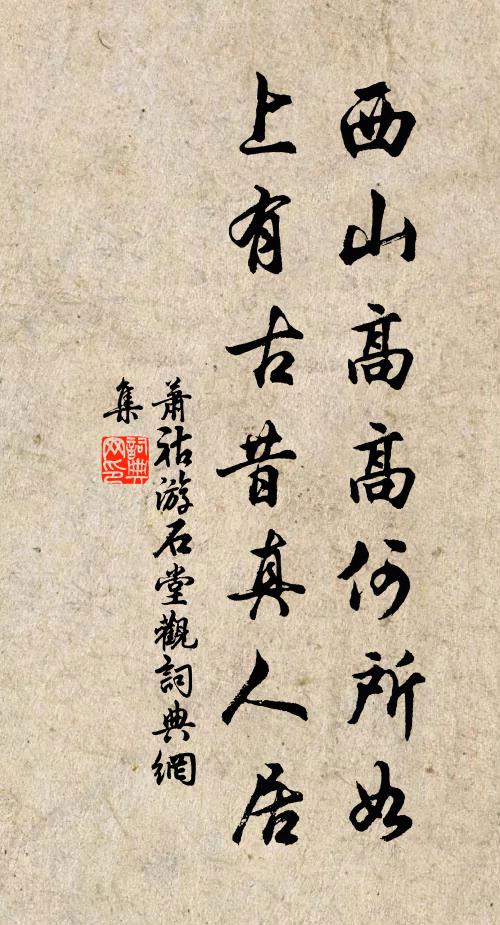 西山高高何所如
上有古昔真人居
蕭祜游石堂觀詞典網
集
詞典
网印